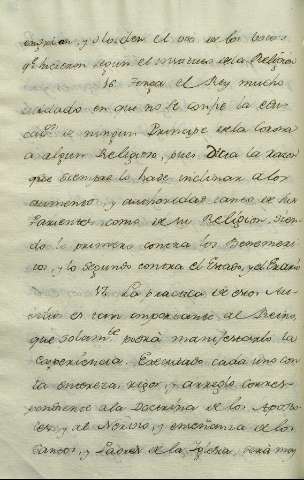 y olviden el uso de los
qe. hicieron segun el instituto de la Religion
16 Tenga el Rey mucho
cuidado en que no se confie la edu
cacn. de ningun Principe de la Corona
a algun Religioso, pues Dicta la razon
que siempre lo hade inclinar a los
aumentos, y autoridades tanto de sus
Parientes como de su Religion, sien
do lo primero contra los Benemeri
tos, y lo segundo contra el Estado, y el Erario
17 La practica de estos Au
xilios es tan importante al Reino,
que solamte. podrá manifestarlo la
Experiencia. Executado cada uno con
la entereza, rigor, y arreglo corres
pondiente a la Doctrina de los Aposto
les, y al Novisimo, y enseñanza de los
Santos, y Padres de la Iglesia, será muy